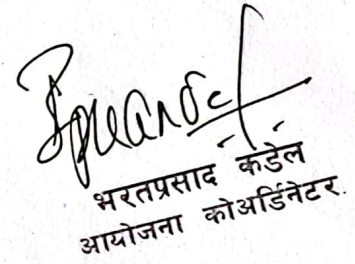 भरतप्रसाद कंडेल
आयोजना कोअर्डिनेटर.